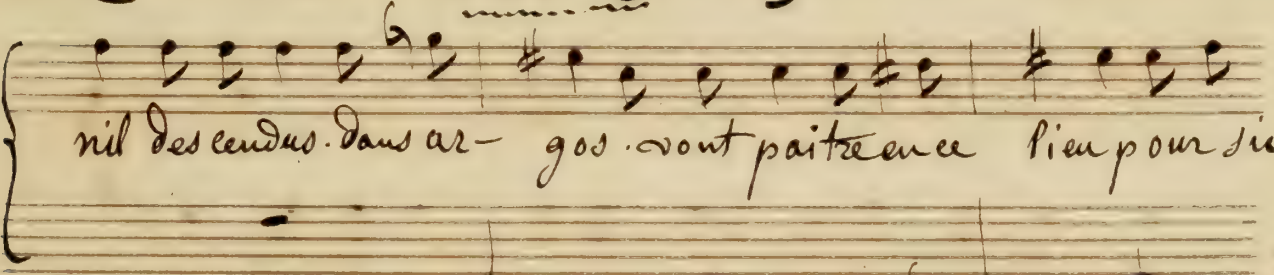 nil des cendus. dans ar- gos. vont paitre en ce lieu pour